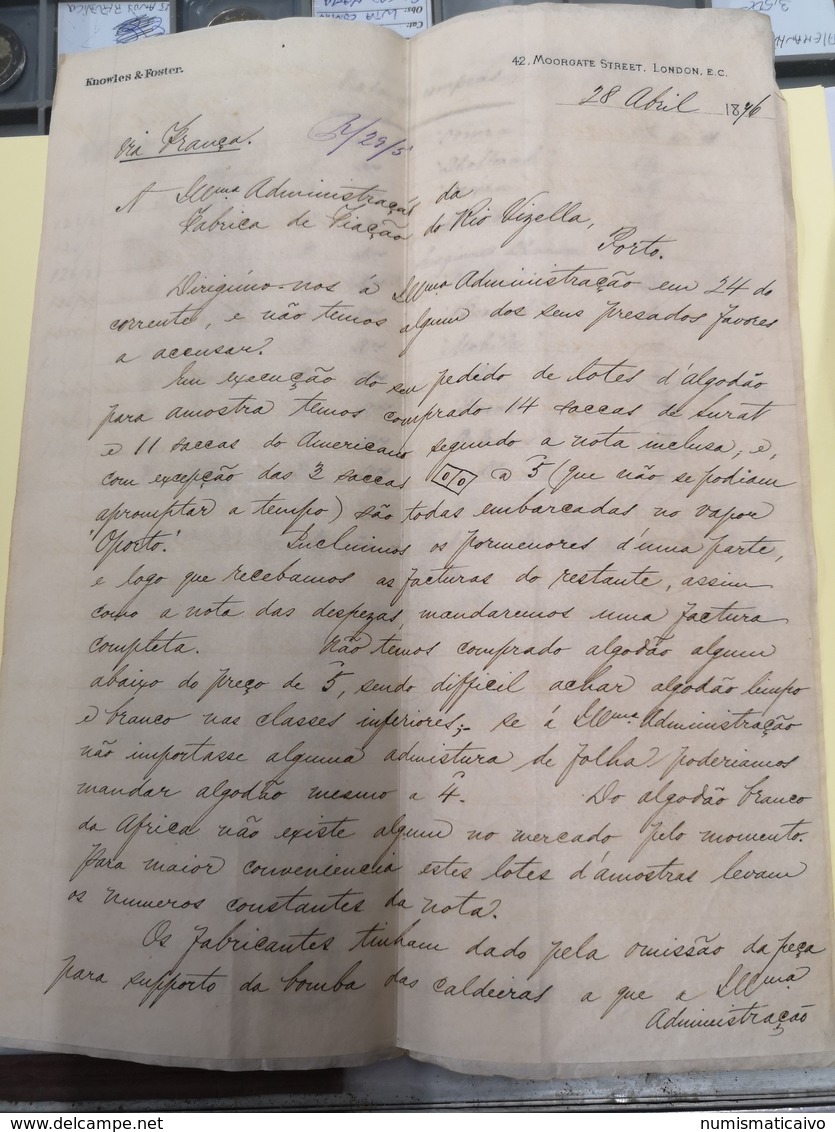 Knowles & Foster.
42, Moorgate Street, London, E.C.
28 Abril 1876
via França.
R/29/5
A Illma Administração da
Fabrica de Fiação do Rio Vizella,
Porto.
Dirigimo-nos á Illma Administração em 24 do
corrente, e não temos algum dos seus presados favores
a accusar.
Em execução do seu pedido de lotes d'algodão
para amostra temos comprado 14 saccas de Surat
e 11 saccas do Americano segundo a nota inclusa, e,
com excepção das 3 saccas a 5 (que não se podiam
apromptar a tempo) são todas embarcadas no vapor
"Oporto". Incluimos os pormenores d'uma parte,
e logo que recebamos as facturas do restante, assim
como a nota das despezas, mandaremos uma factura
completa. Não temos comprado algodão algum
abaixo do preço de 5, sendo difficil achar algodão limpo
e branco nas classes inferiores;- se á Illma Administração
não importasse alguma admistura de folha, poderiamos
mandar algodão mesmo a 4. Do algodão branco
da Africa não existe algum no mercado pelo momento.
Para maior conveniencia estes lotes d'amostras levam
os numeros constantes da nota.
Os fabricantes tinham dado pela omissão da peça
para supporto da bomba das caldeiras a que a Illma
Administração
www.numismaticaivo